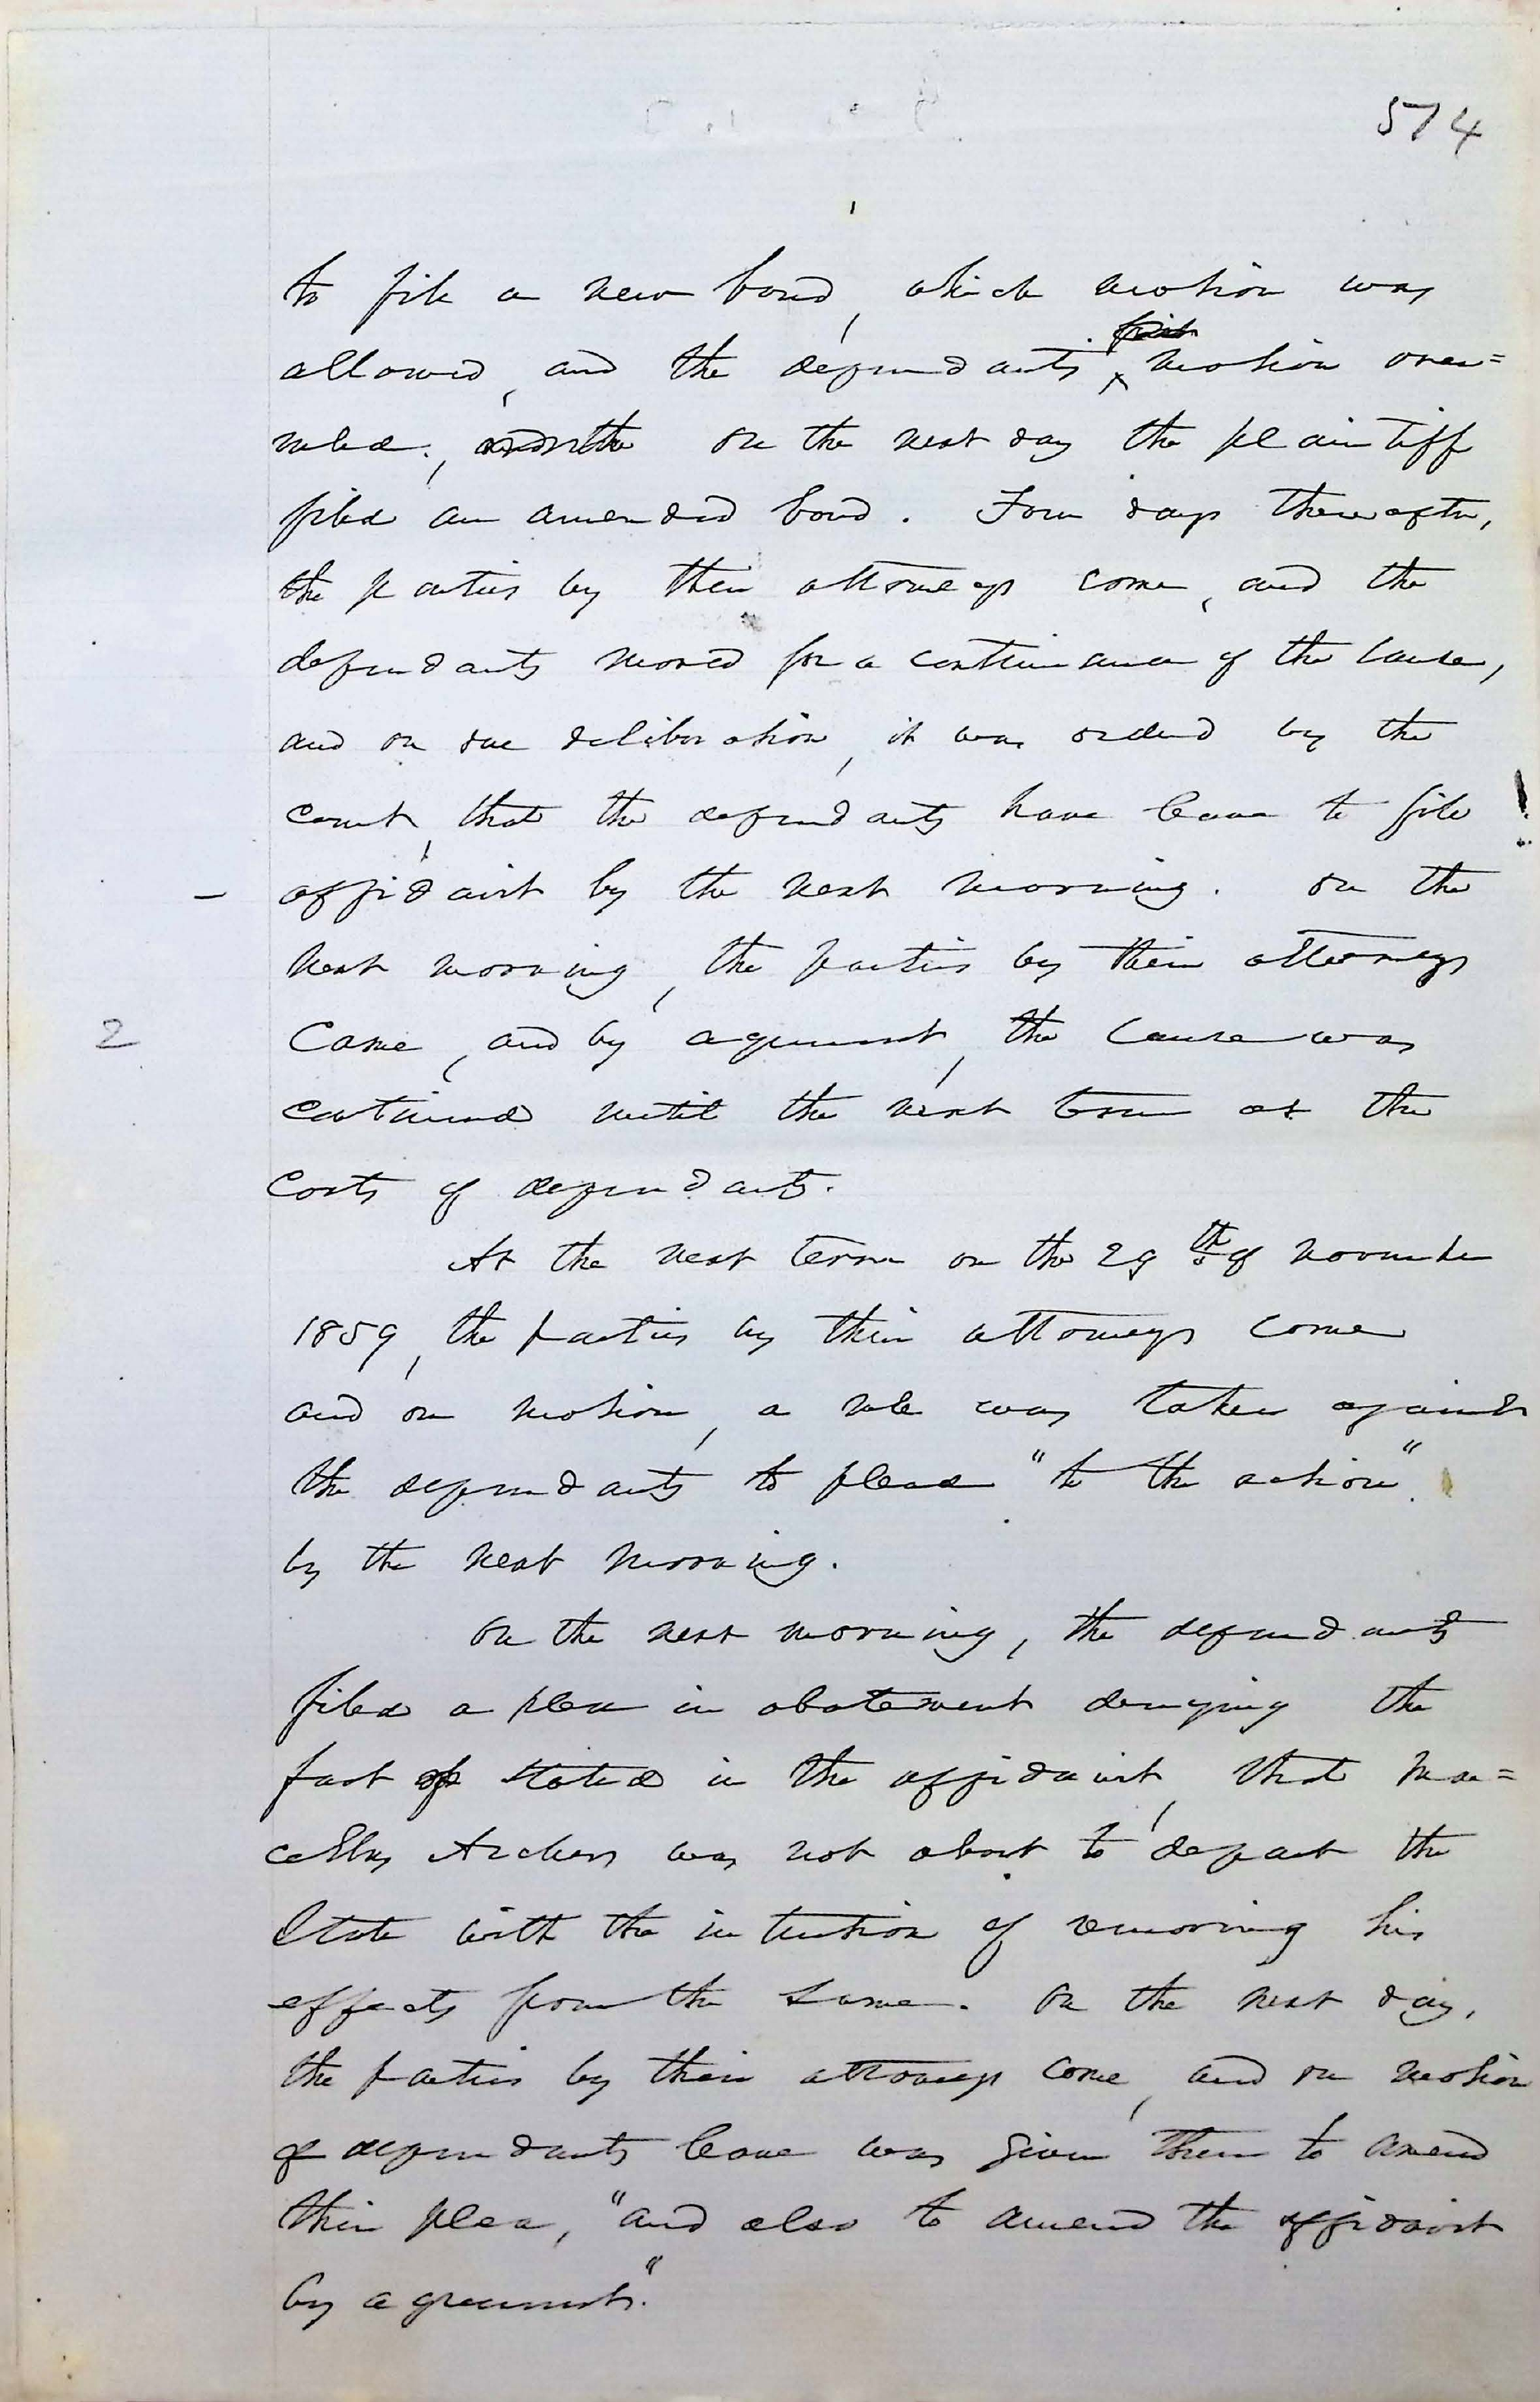 574
to file a new bond, which motion was
allowed, and the defendants motion over=
ruled; on the next day the plaintiff
filed an amended bond. Four days thereafter,
the parties by their attorneys come, and the
defendants moved for a continuance of the cause,
and on due deliberation, it was ordered by the
court, that the defendants have leave to file
affidavit by the next morning. On the
next morning, the parties by their attorneys
2
came, and by agreement, the cause was
continued until the next term at the
costs of defendants.
At the next term on the 29th of November
1859, the parties by their attorneys come
and on motion, a rule was taken against
the defendants to plead "to the action"
by the next morning.
On the next morning, the defendants
filed a plea in abatement denying the
fact stated in the affidavit, that Mar=
cellus Archer was not about to depart the
State with the intention of removing his
effects from the same. On the next day,
the parties by their attorneys come, and on motion
of defendants leave was given them to amend
their plea, "and also to amend the affidavit
by agreement."